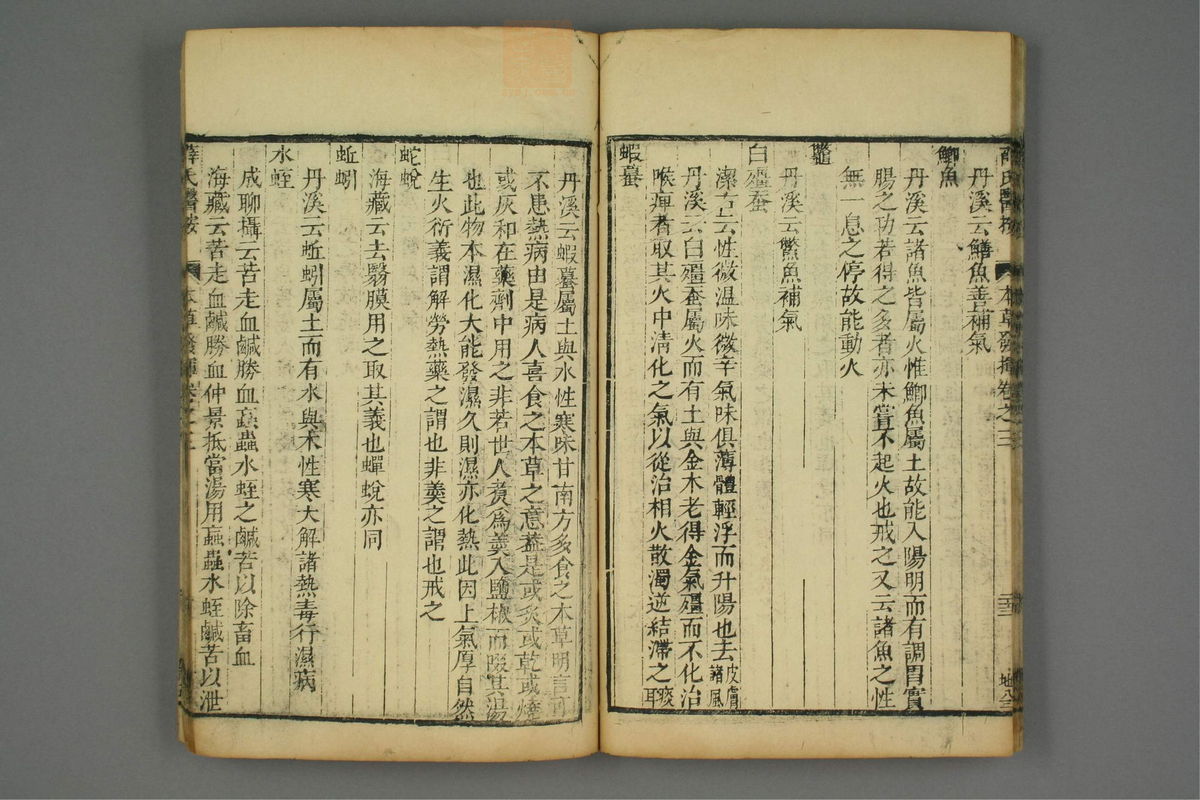 薛氏醫按 本草發揮卷之三
丹溪云鱔魚善補氣
鯽魚
丹溪云諸魚皆屬火惟鯽魚屬土故能入陽明而有調胃實
腸之功若得之多者亦未嘗不起火也戒之又云諸魚之性
無一息之停故能動火
鱉
丹溪云鱉魚補氣
白殭蚕
潔古云性微温味微辛氣味俱薄體輕浮而升陽也去皮膚諸風
丹溪云白殭蚕屬火而有土與金木老得金氣殭而不化治
喉痺者取其火中清化之氣以從治相火散濁逆結滯之痰耳
蝦蟇
丹溪云蝦蟇屬土與水性寒味甘南方多食之本草明言可
不患熱病由是病人喜食之本草之意蓋是或炙或乾或燒
或灰和在藥劑中用之非若世人煑為羹入鹽椒而啜其湯
也此物本濕化大能發濕久則濕亦化熱此因上氣厚自然
生火衍義謂解勞熱藥之謂也非羹之謂也戒之
蛇蛻
海藏云去翳膜用之取其義也蟬蛻亦同
蚯蚓
丹溪云蚯蚓屬土而有水與木性寒大解諸熱毒行濕病
水蛭
成聊攝云苦走血鹹勝血䖟蟲水蛭之鹹苦以除畜血
海藏云苦走血鹹勝血仲景抵當湯用䖟蟲水蛭鹹苦以泄
薛氏醫按 本草發揮卷之三